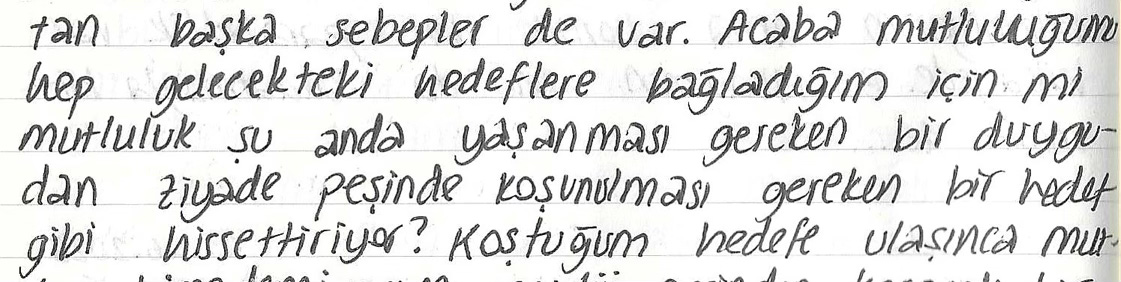 tan başka sebepler de var. Acaba mutluluğumu
hep gelecekteki hedeflere bağladığım için mi
mutluluk şu anda yaşanması gereken bir duygu-
dan ziyade peşinde koşunulması gereken bir hedef
gibi hissettiriyor? Koştuğum hedefe ulaşınca mut-